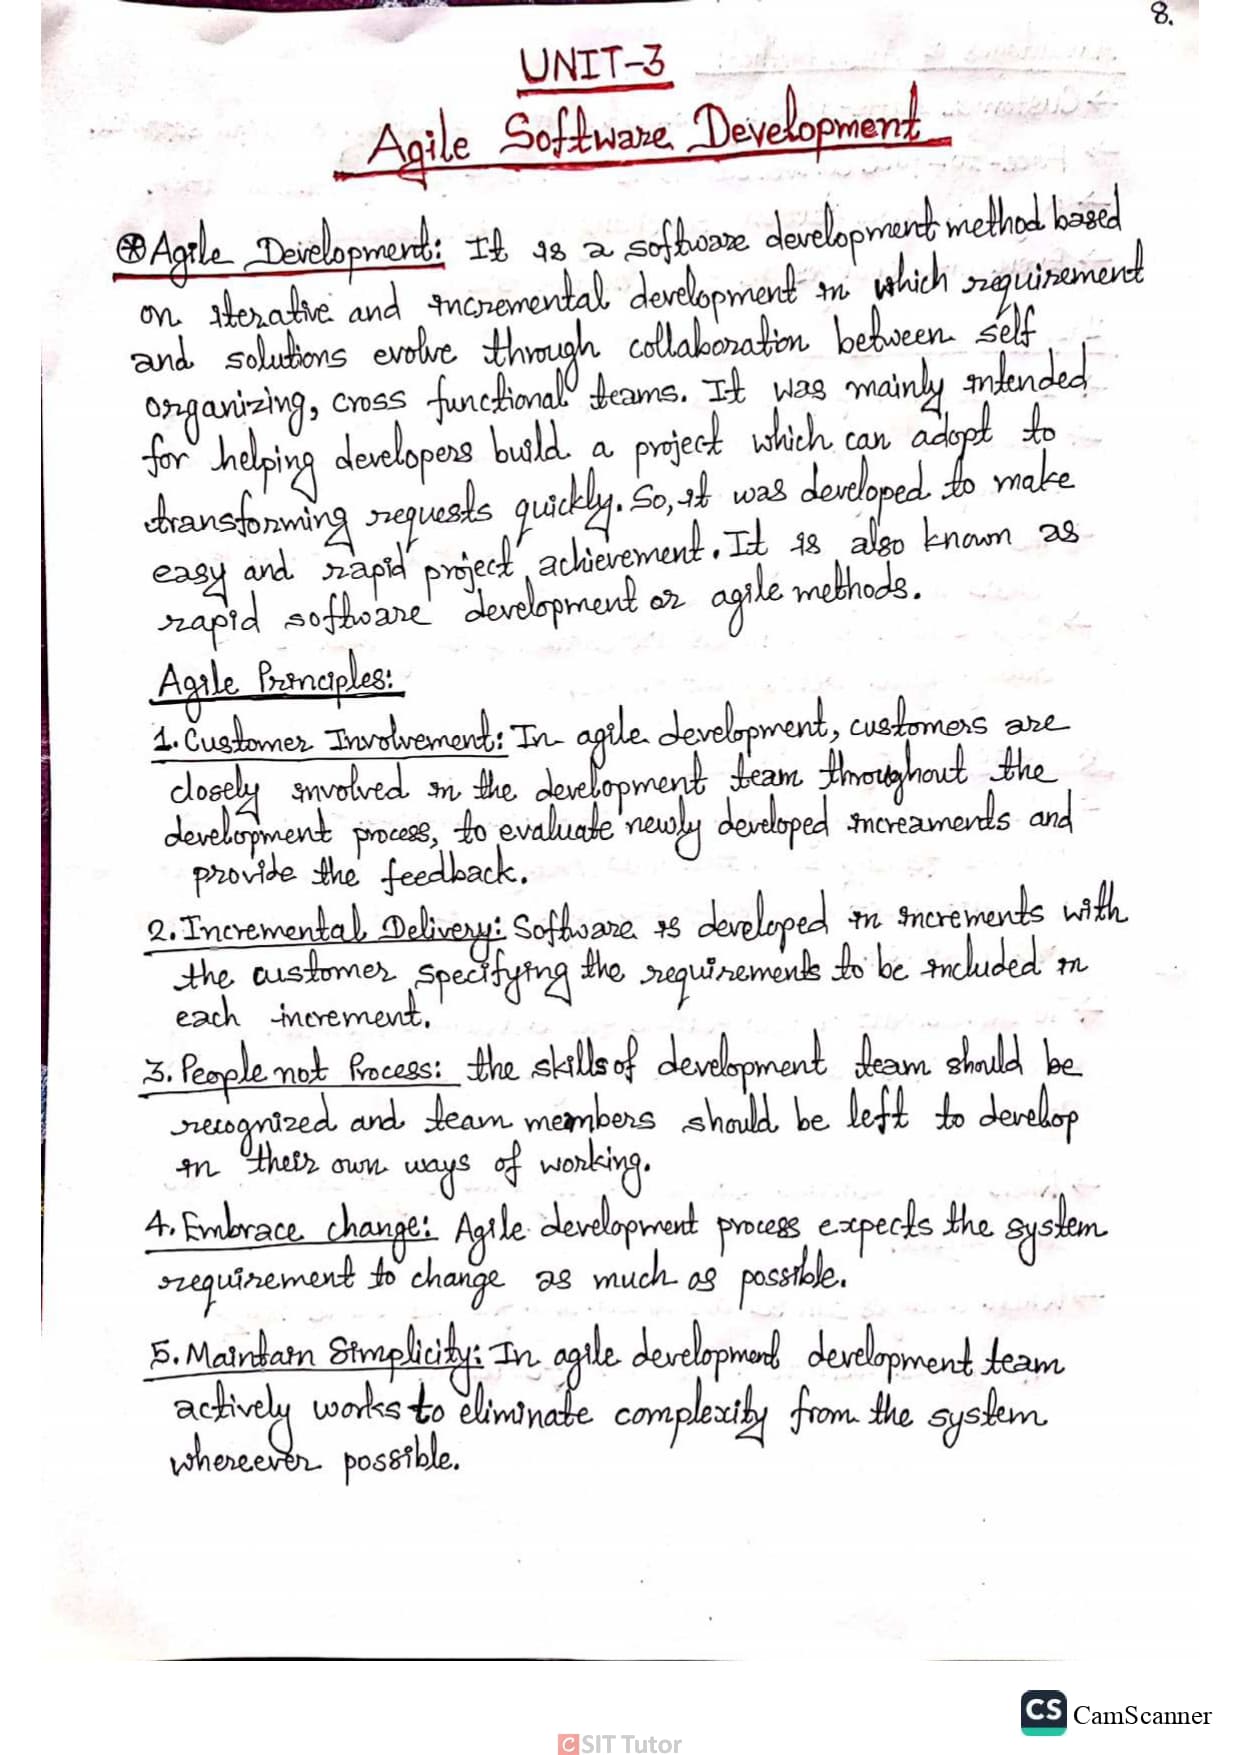 8.
UNIT-3
Agile Software Development
⊛ Agile Development: It is a software development method based
on iterative and incremental development in which requirement
and solutions evolve through collaboration between self
organizing, cross functional teams. It was mainly intended
for helping developers build a project which can adopt to
transforming requests quickly. So, it was developed to make
easy and rapid project achievement. It is also known as
rapid software development or agile methods.
Agile Principles:
1. Customer Involvement: In agile development, customers are
closely involved in the development team throughout the
development process, to evaluate newly developed increaments and
provide the feedback.
2. Incremental Delivery: Software is developed in increments with
the customer specifying the requirements to be included in
each increment.
3. People not Process: the skills of development team should be
recognized and team members should be left to develop
in their own ways of working.
4. Embrace change: Agile development process expects the system
requirement to change as much as possible.
5. Maintain Simplicity: In agile development development team
actively works to eliminate complexity from the system
whereever possible.
CS CamScanner
CSIT Tutor